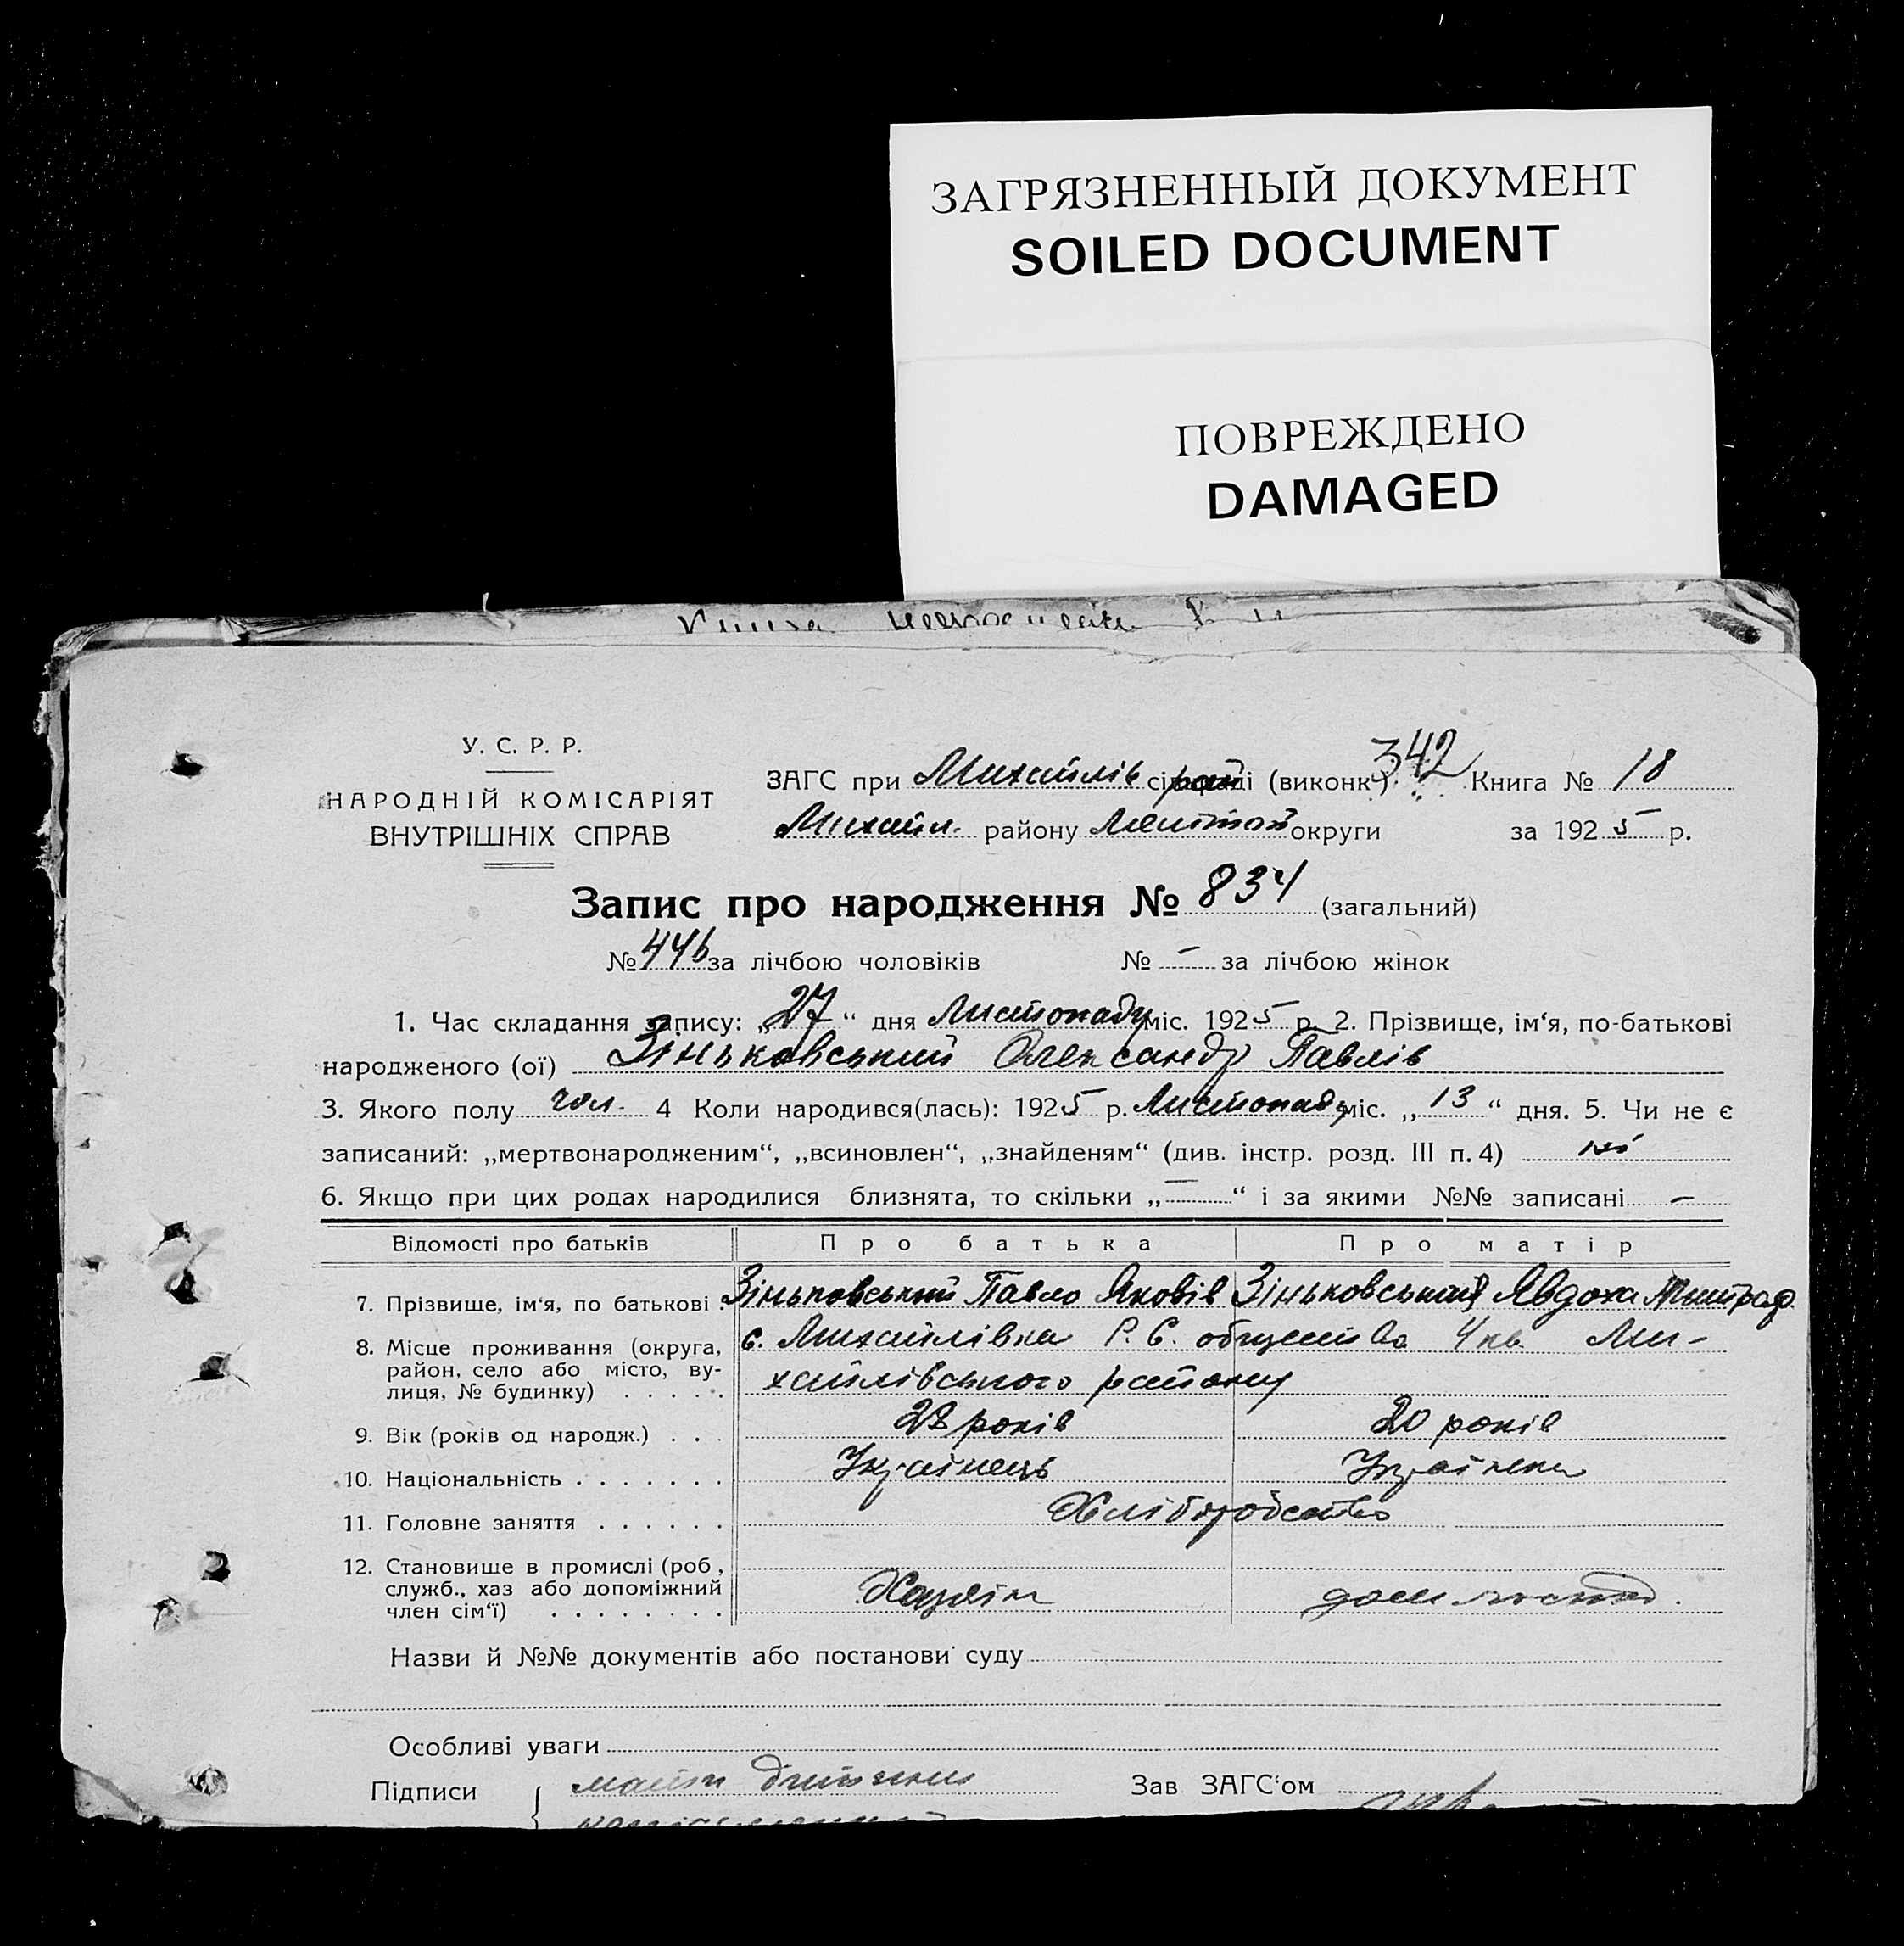 ЗАГРЯЗНЕННЫЙ ДОКУМЕНТ
SOILED DOCUMENT
ПОВРЕЖДЕНО
DAMAGED
У. С. Р. Р.
НАРОДНІЙ КОМІСАРІЯТ
ВНУТРІШНІХ СПРАВ
342
ЗАГС при Михайлів сільраді рай (виконк.) Книга № 18
Михайл. району Меліт округи за 1925 р.
Запис про народження № 834 (загальний)
№ 446 за лічбою чоловіків № – за лічбою жінок
1. Час складання запису: „27“ дня Листопаду міс. 1925 р. 2. Прізвище, ім‘я, по-батькові
народженого (ої) Зіньковський Олександр Павлів
3. Якого полу чол. 4 Коли народився(лась): 1925 р. Листопаду міс. „13“ дня. 5. Чи не є
записаний: „мертвонародженим“, „всиновлен“, „знайденям“ (див. інстр. розд. III п. 4) ні
6. Якщо при цих родах народилися близнята, то скільки „—“ і за якими №№ записані –
Відомості про батьків Про батька Про матір
7. Прізвище, ім‘я, по батькові . Зіньковський Павло Яковів Зіньковська Явдоха
8. Місце проживання (округа, район, село або місто, ву-лиця, № будинку) . . . . . с. Михайлівка Р. С. общества 4 кв Ми-
хайлівського району
9. Вік (років од народж.) . . . 28 років 20 років
10. Національність . . . . . . . Українець Українка
11. Головне заняття . . . . . . Хліборобство
12. Становище в промислі (роб, служб., хаз або допоміжний член сім‘ї) . . . . . . . . Хазяін дом господ.
Назви й №№ документів або постанови суду
Особливі уваги
Підписи мати дитини Зав ЗАГС‘ом